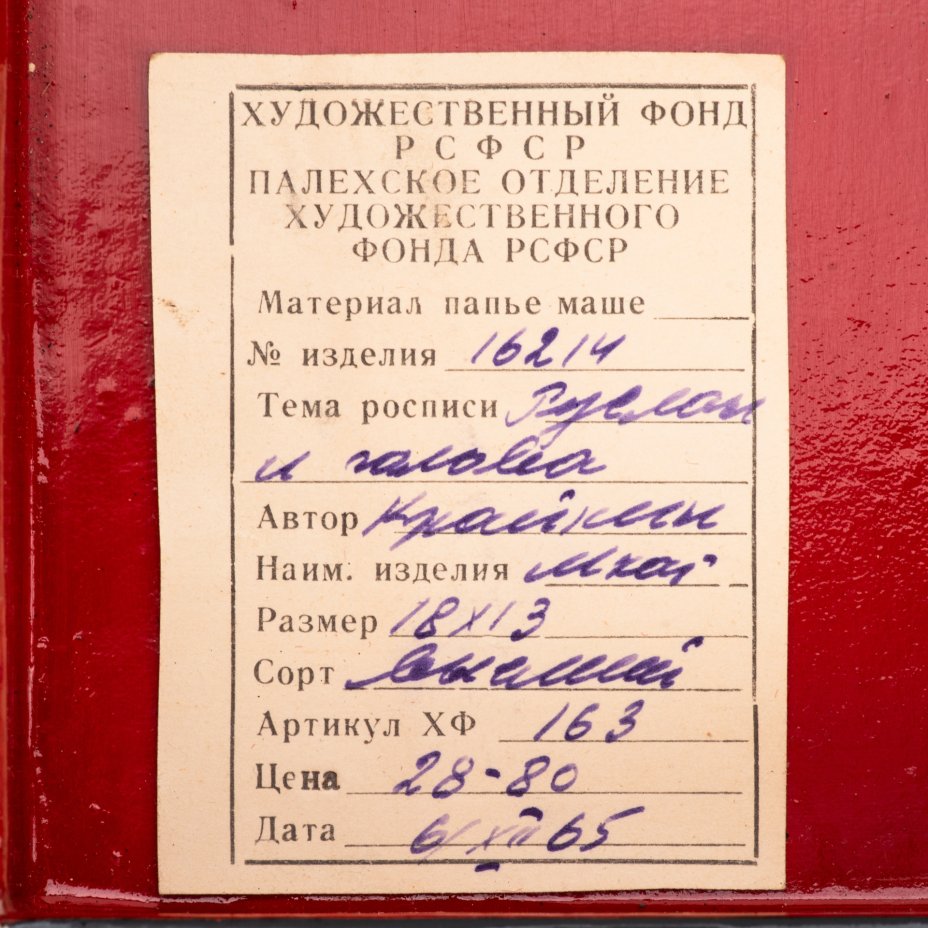 ХУДОЖЕСТВЕННЫЙ ФОНД
РСФСР
ПАЛЕХСКОЕ ОТДЕЛЕНИЕ
ХУДОЖЕСТВЕННОГО
ФОНДА РСФСР
Материал папье маше
№ изделия 16214
Тема росписи Руслан
и голова
Автор
Наим. изделия
Размер 18х13
Сорт высший
Артикул ХФ 163
Цена 28-80
Дата 6/XII 65